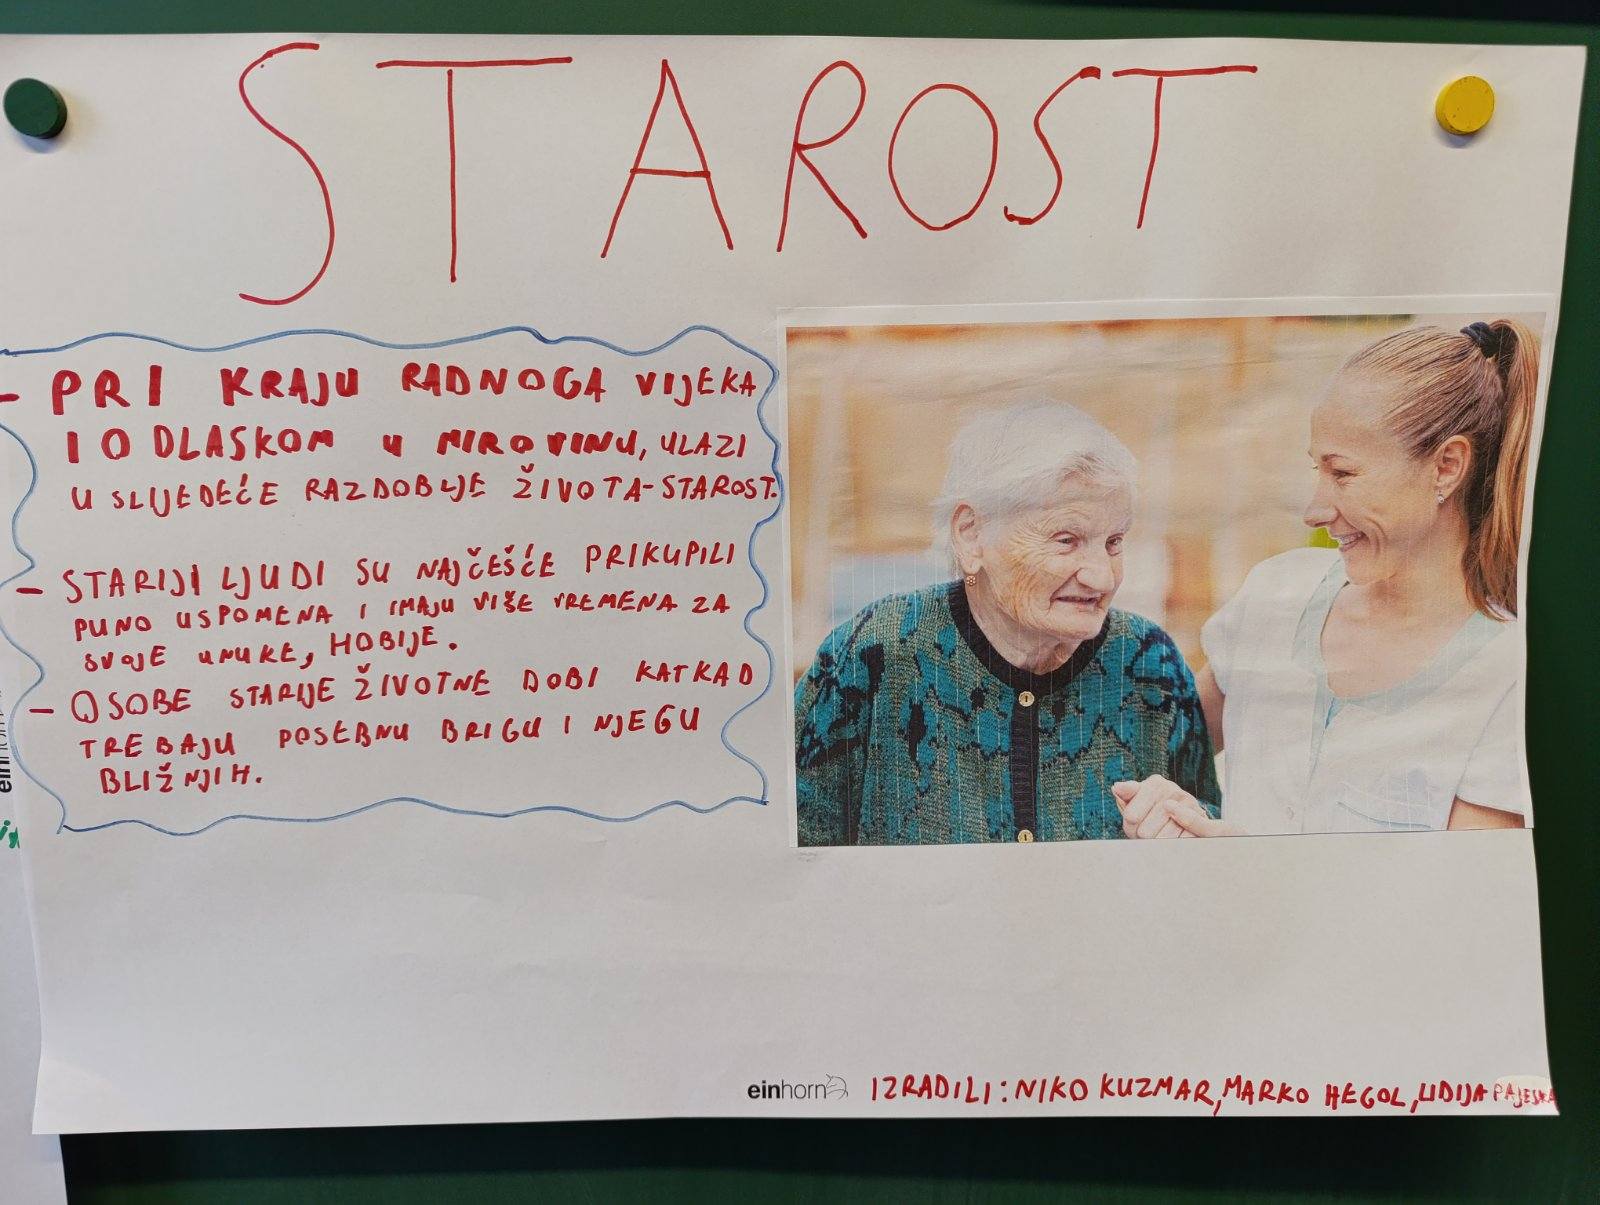 STAROST
- PRI KRAJU RADNOGA VIJEKA
I ODLASKOM U MIROVINU, ULAZI
U SLIJEDEĆE RAZDOBLJE ŽIVOTA-STAROST.
- STARIJI LJUDI SU NAJČEŠĆE PRIKUPILI
PUNO USPOMENA I IMAJU VIŠE VREMENA ZA
SVOJE UNUKE, HOBIJE.
- OSOBE STARIJE ŽIVOTNE DOBI KATKAD
TREBAJU POSEBNU BRIGU I NJEGU
BLIŽNJIH.
einhorn
IZRADILI: NIKO KUZMAR, MARKO HEGOL, LIDIJA